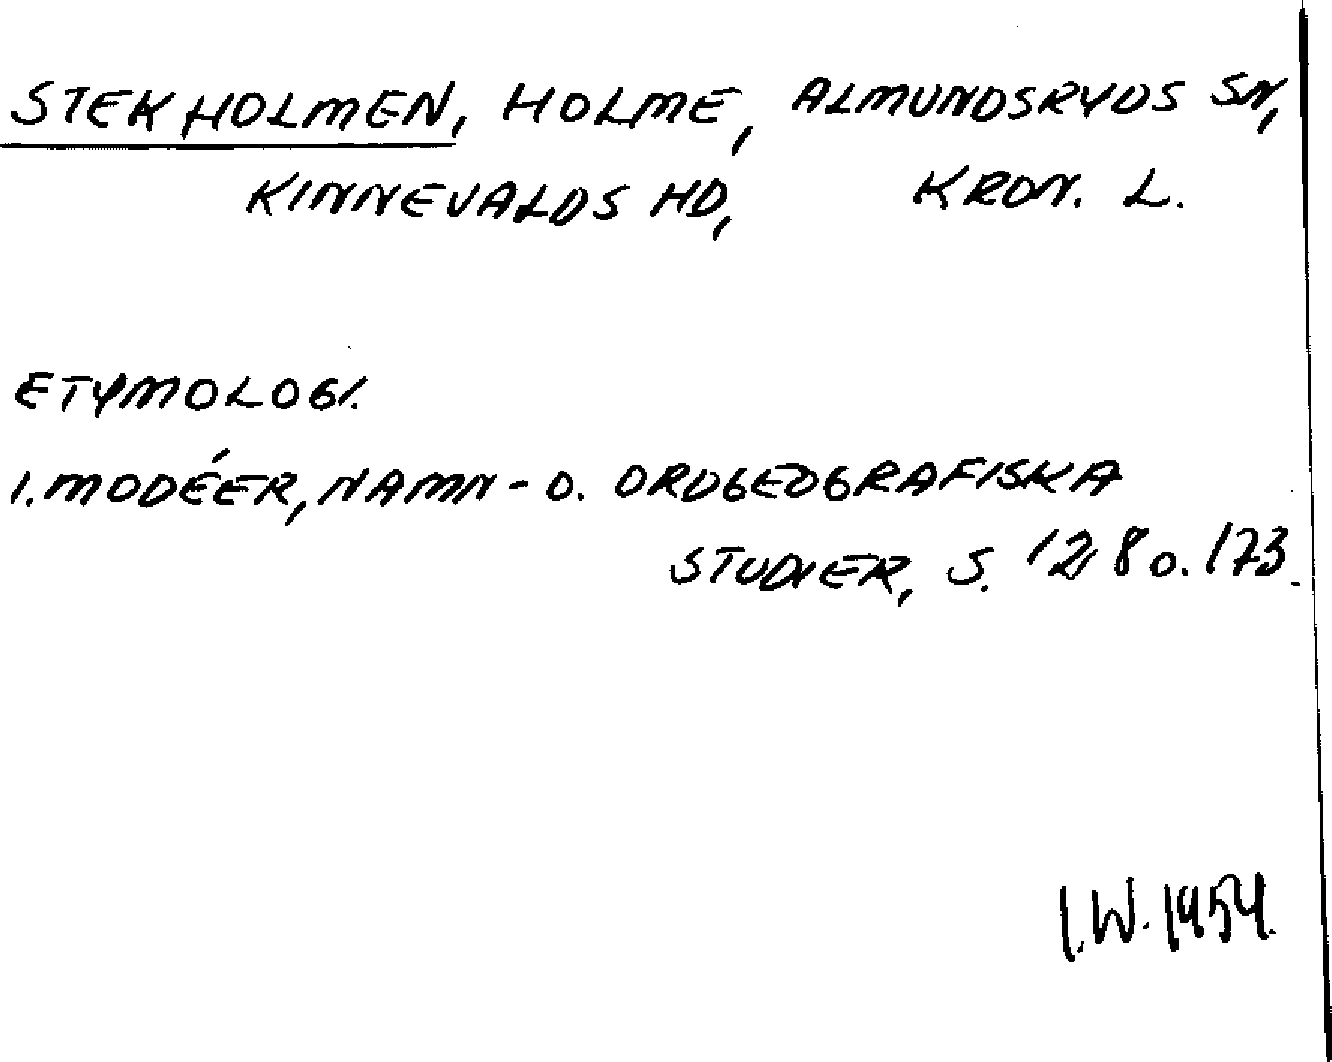 STEKHOLMEN, HOLME, ALMUNDSRYDS SN,
KINNEVALDS HD, KRON. L.
ETYMOLOGI.
I. MODÉER, NAMN- O. ORDGEOGRAFISKA
STUDIER, S. 128 o. 173.
I.W. 1954.